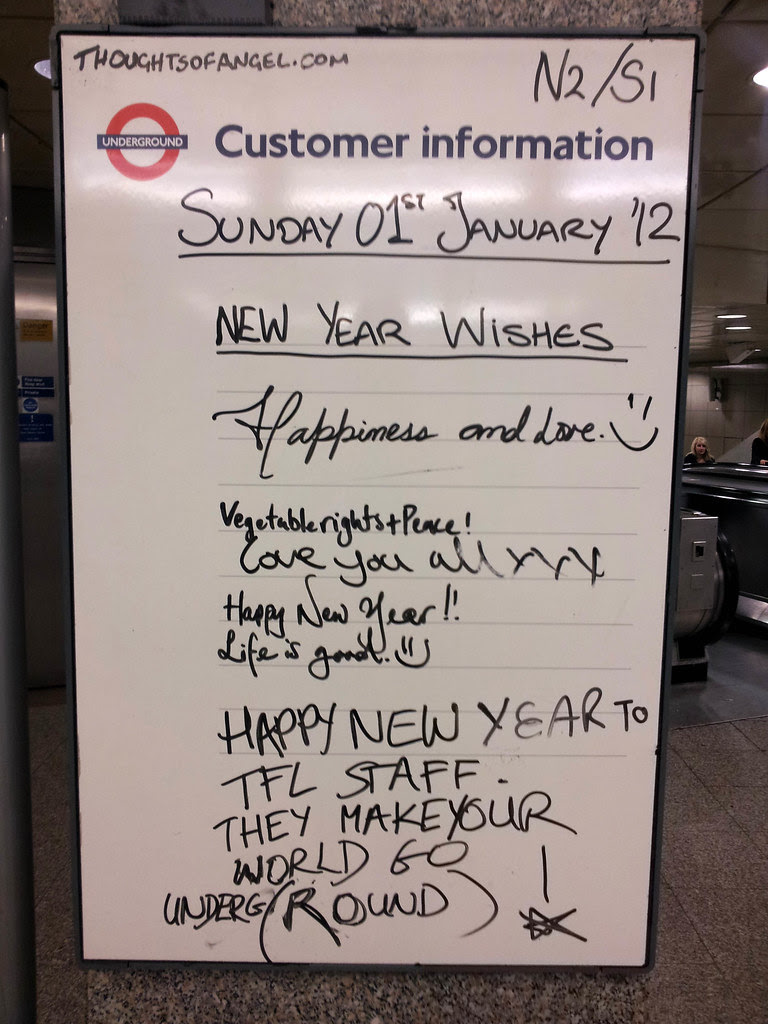 THOUGHTSOFANGEL.COM
N2/S1
UNDERGROUND
Customer information
SUNDAY 01ST JANUARY '12
NEW YEAR WISHES
Happiness and Love.
Vegetable rights + Peace!
Love you all xxx
Happy New Year!!
Life is good.
HAPPY NEW YEAR TO
TFL STAFF.
THEY MAKE YOUR
WORLD GO
UNDERG(ROUND)!